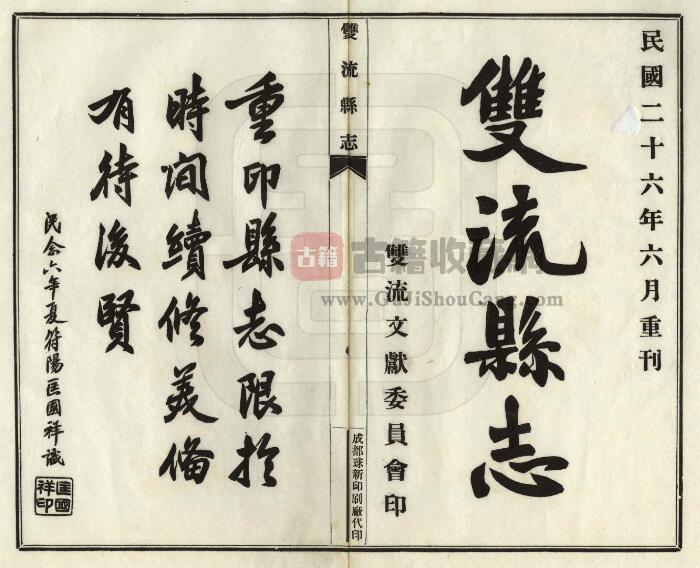 民國二十六年六月重刊
雙流縣志
雙流文獻委員會印
雙流縣志
成都球新印刷廠代印
重印縣志限於
時間續修美備
有待後賢
民念六年夏符陽匡國祥識
匡國祥印
古籍
古籍收藏网
www.GuJiShouCang.com